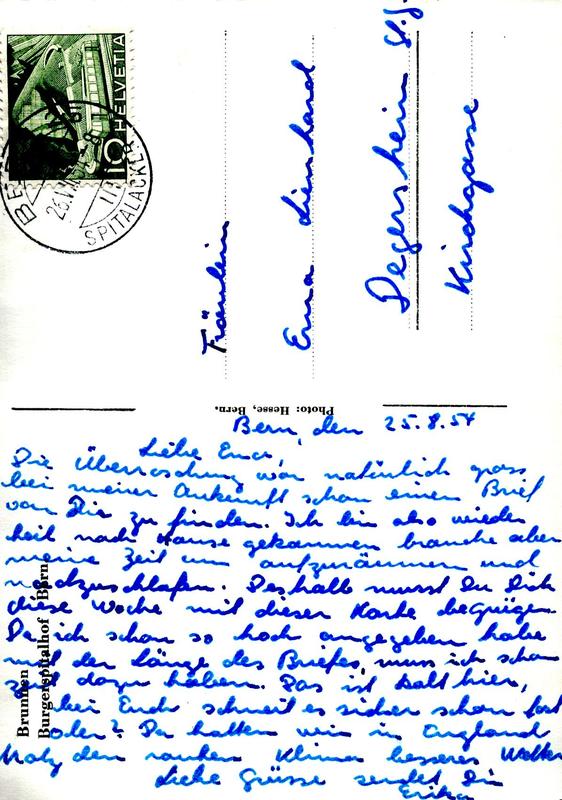 HELVETIA
10
BE
SPITALACKER
Fräulein
Erna Lienhard
Degersheim St.G.
Kirchgasse
Photo: Hesse, Bern.
Brunnen
Burgerspitalhof Bern
Bern, den 25.8.54
Liebe Erna,
Die Überraschung war natürlich gross
bei meiner Ankunft schon einen Brief
von Dir zu finden. Ich bin also wieder
heil nach Hause gekommen brauche aber
meine Zeit um aufzuräumen und
nachzuschlafen. Deshalb musst Du Dich
diese Woche mit dieser Karte begnügen.
Da ich schon so hoch angegeben habe
mit der Länge des Briefes, muss ich schon
Zeit dazu haben. Das ist kalt hier,
bei Euch schneit es sicher schon fast
oder? Da hatten wir in England
trotz dem rauhen Klima besseres Wetter
Liebe Grüsse sendet Dir
Erika